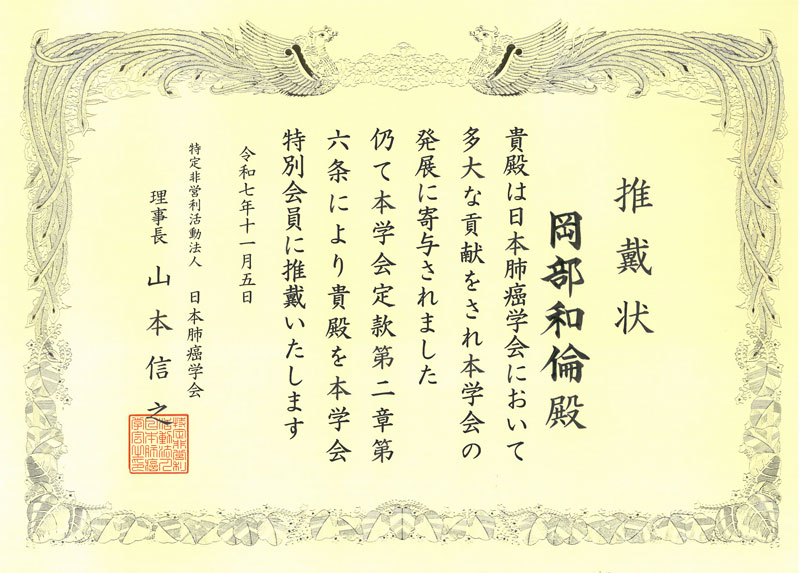 推戴状
岡部和倫殿
貴殿は日本肺癌学会において
多大な貢献をされ本学会の
発展に寄与されました
仍て本学会定款第二章第
六条により貴殿を本学会
特別会員に推戴いたします
令和七年十一月五日
特定非営利活動法人 日本肺癌学会
理事長 山本信之
特定非営利
活動法人
日本肺癌
学会之印